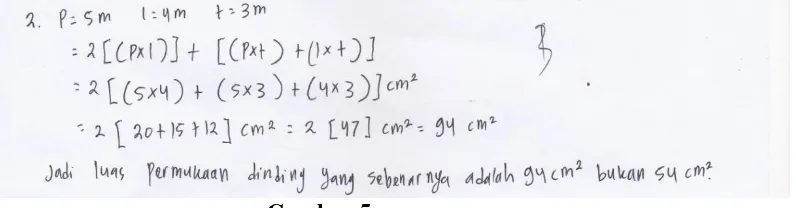 2. P = 5 m l = 4 m t = 3 m
= 2 [(P×l)] + [(P×t) + (l×t)]
= 2 [(5×4) + (5×3) + (4×3)] cm²
= 2 [20+15+12] cm² = 2 [47] cm² = 94 cm²
Jadi luas permukaan dinding yang sebenarnya adalah 94 cm² bukan 54 cm².